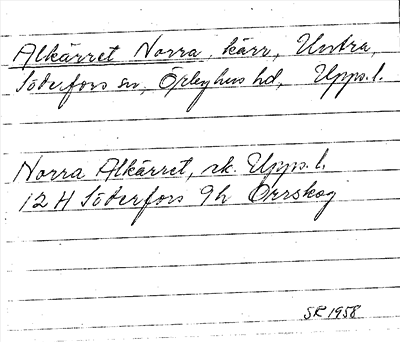 Alkärret Norra, kärr, Untra,
Söderfors sn, Örbyhus hd, Upps. l.
Norra Alkärret, sk. Upps. l.
12 H Söderfors 9h Orrskog
SR 1958